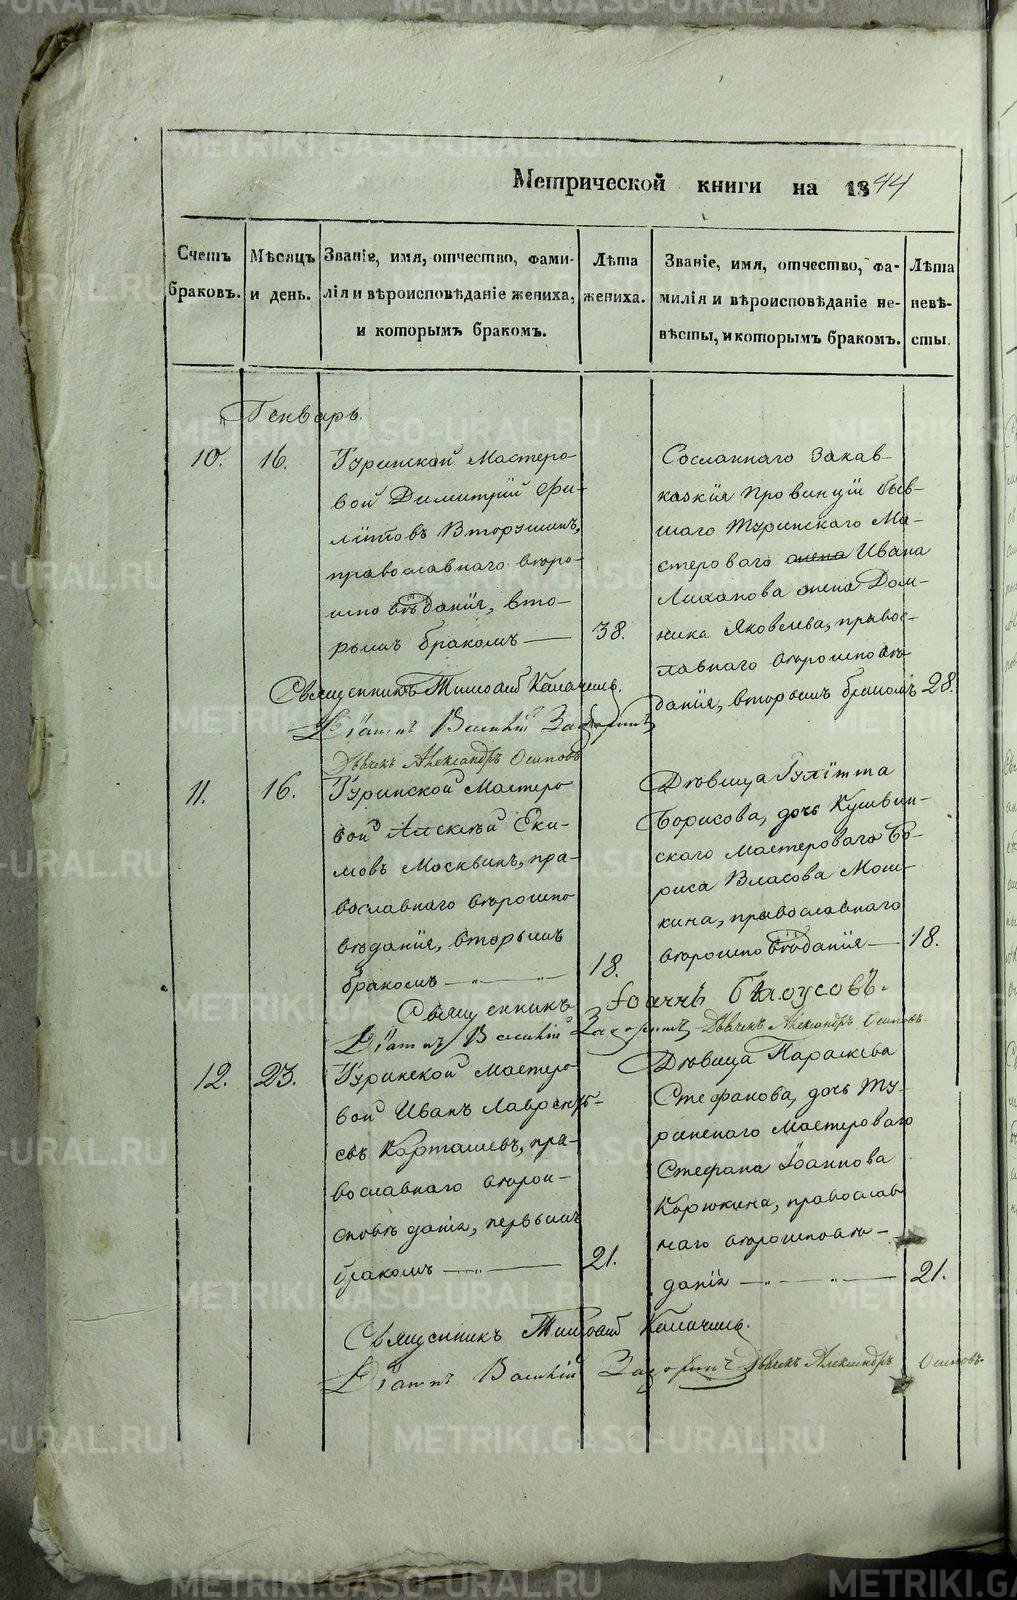 Метрической книги на 1844
Счетъ браковъ.
Мѣсяцъ и день.
Званіе, имя, отчество, фами-
лія и вѣроисповѣданіе жениха,
и которымъ бракомъ.
Лѣта
жениха.
Званіе, имя, отчество, фа-
милія и вѣроисповѣданіе не-
вѣсты, и которымъ бракомъ.
Лѣта
невѣ-
сты.
Генварь.
10.
16.
Туринской Мастеро-
вой Димитрій Фи-
липовъ Вторушинъ,
православнаго вѣро-
исповѣданія, вто-
рымъ бракомъ
38.
Сосланнаго Закав-
казкія провинціи быв-
шаго Туринскаго Ма-
стероваго жена Ивана
жена Дом-
ника Яковлева, правос-
лавнаго вѣроисповѣ-
данія, вторымъ бракомъ
28.
Священникъ Тимофей Калачевъ.
Діаконъ Василій
Дьячекъ Александръ Осиповъ
11.
16.
Туринской Мастеро-
вой Алексѣй Еки-
мовъ Москвинъ, пра-
вославнаго вѣроиспо-
вѣданія, вторымъ
бракомъ
18.
Дѣвица Іулитта
Борисова, дочь Кушвин-
скаго Мастероваго Бо-
риса Власова Мош-
кина, православнаго
вѣроисповѣданія
18.
Священникъ Іоаннъ Бѣлоусовъ.
Діаконъ Василій Дьячекъ Александръ Осиповъ
12.
23.
Туринской Мастеро-
вой Иванъ Лавренть-
евъ Карташевъ, пра-
вославнаго вѣрои-
сповѣданія, первымъ
бракомъ
21.
Дѣвица Параскева
Стефанова, дочь Ту-
ринскаго Мастероваго
Стефана Іоаннова
Корюкина, православ-
наго вѣроисповѣ-
данія
21.
Священникъ Тимофей Калачевъ.
Діаконъ Василій Дьячекъ Александръ Осиповъ
METRIKI.GASO-URAL.RU